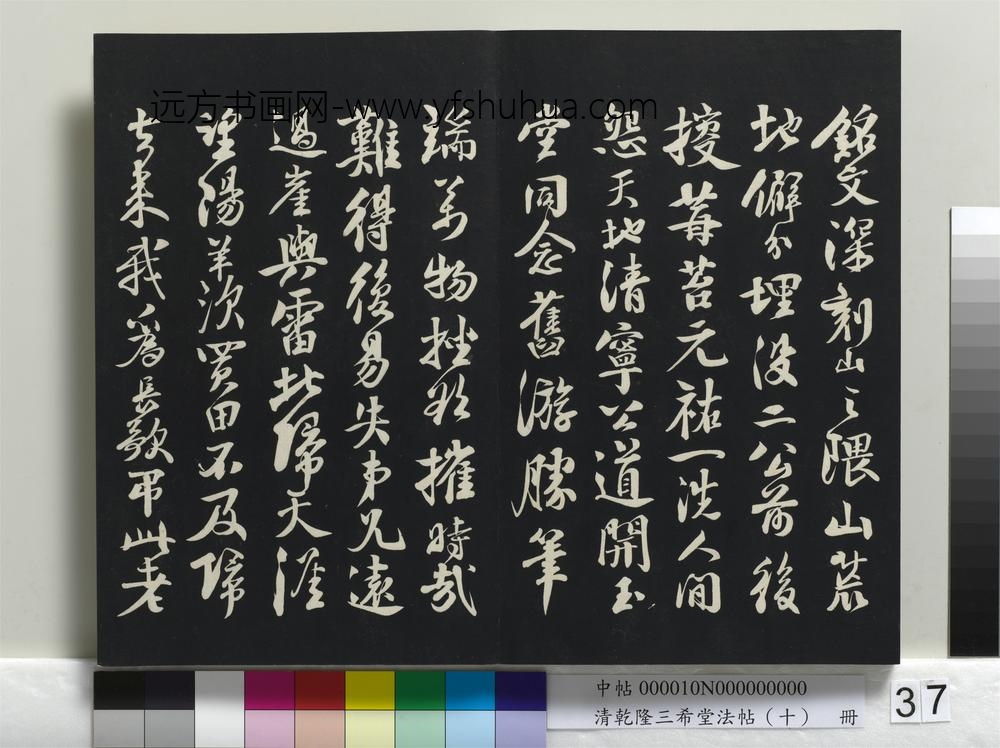 远方书画网-www.yfshuhua.com
銘文深刻山之隈山荒
地僻分埋没二公前後
莓苔元祐一洗人間
怨天地清寧公道開玉
堂同念舊游勝筆
端萬物挫欲摧時哉
難得復易失弟兄遠
過崖與雷北歸天涯
望陽羨買田不及歸
去来我為長歌弔此老
中帖 000010N000000000
清乾隆三希堂法帖（十） 冊
37